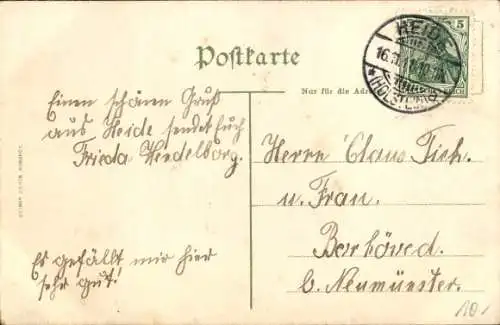 Postkarte
HEIDE
(HOLSTEIN)
5
Nur für die Adre
Einen schönen Gruß
aus Heide sendet Euch
Frieda Heidelberg.
Es gefällt mir hier
sehr gut!
Herrn Claus Tich.
u. Frau.
Bornhöved.
b. Neumünster.
10.-